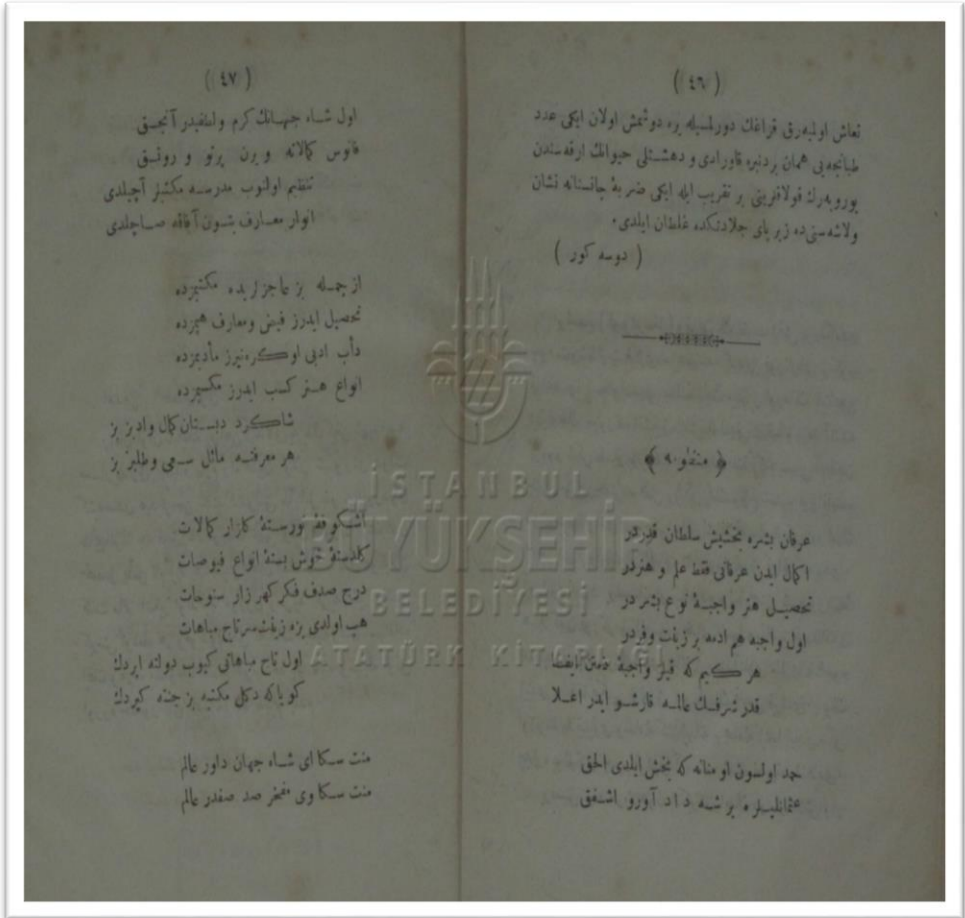 ( ٤٦ )
نعاش اولیه‌رق قراغك دورلمسیله یره دوشمش اولان ایکی عدد
طبانجه‌یی همان بردنبره قاورادی و دهشتلی حیوانك ارقه‌سندن
یوریه‌رك بر تقریب ایله ایکی ضربهٔ جانستانه نشان
ولاشه‌سنی‌ده زیر پای جلادتکده غلطان ایلدی.
( دوسه کور )
﴿ منظومه ﴾
عرفان بشره بخشیش سلطان قدردر
اکمال ایدن عرفانی فقط علم و هنردر
تحصیل هنر واجبهٔ نوع بشردر
اول واجبه هم ادمه بر زینت وفردر
هر کیم که قیلر واجبهٔ ایفا
قدر شرفك عالمه قارشو ایدر اعلا
حمد اولسون او منانه که بخش ایلدی الحق
عثمانلیلره بر شه داد آور و اشفق
( ٤٧ )
اول شاه جهانك کرم ولطفیدر آنجق
فانوس کمالاته ویرن پرتو و رونق
تنظیم اولنوب مدرسه مکتبلر آچیلدی
انوار معارف بتون آفاقه صاچلدی
از جمله بز عاجزلریده مکتبمزده
تحصیل ایدرز فیض ومعارف همزده
دأب ادبی اوکره‌نیرز مأدبمزده
انواع هنر کسب ایدرز مکسبمزده
شاکرد دبستان کمال وادبز بز
هر معرفته مائل سعی وطلبز بز
اشکوفهٔ نورستهٔ کلزار کمالات
کلدستهٔ خوش بستهٔ انواع فیوضات
درج صدف فکر کهر زار سنوحات
هپ اولدی بزه زینت سر تاج مباهات
اول تاج مباهاتی کیوب دولته ایردك
کویا که دکل مکتبه بز جنته کیردك
منت سکا ای شاه جهان داور عالم
منت سکا وی مفخر صد صفدر عالم
İSTANBUL
BÜYÜKŞEHİR
BELEDİYESİ
ATATÜRK KİTAPLIĞI